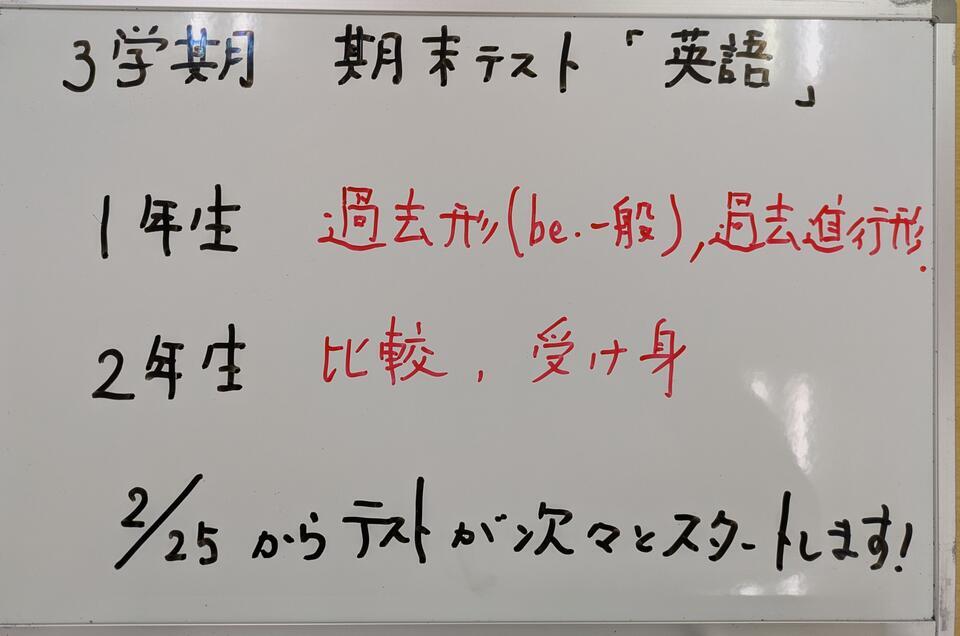 3学期 期末テスト「英語」
1年生 過去形(be.一般),過去進行形.
2年生 比較,受け身
2/25からテストが次々とスタートします!